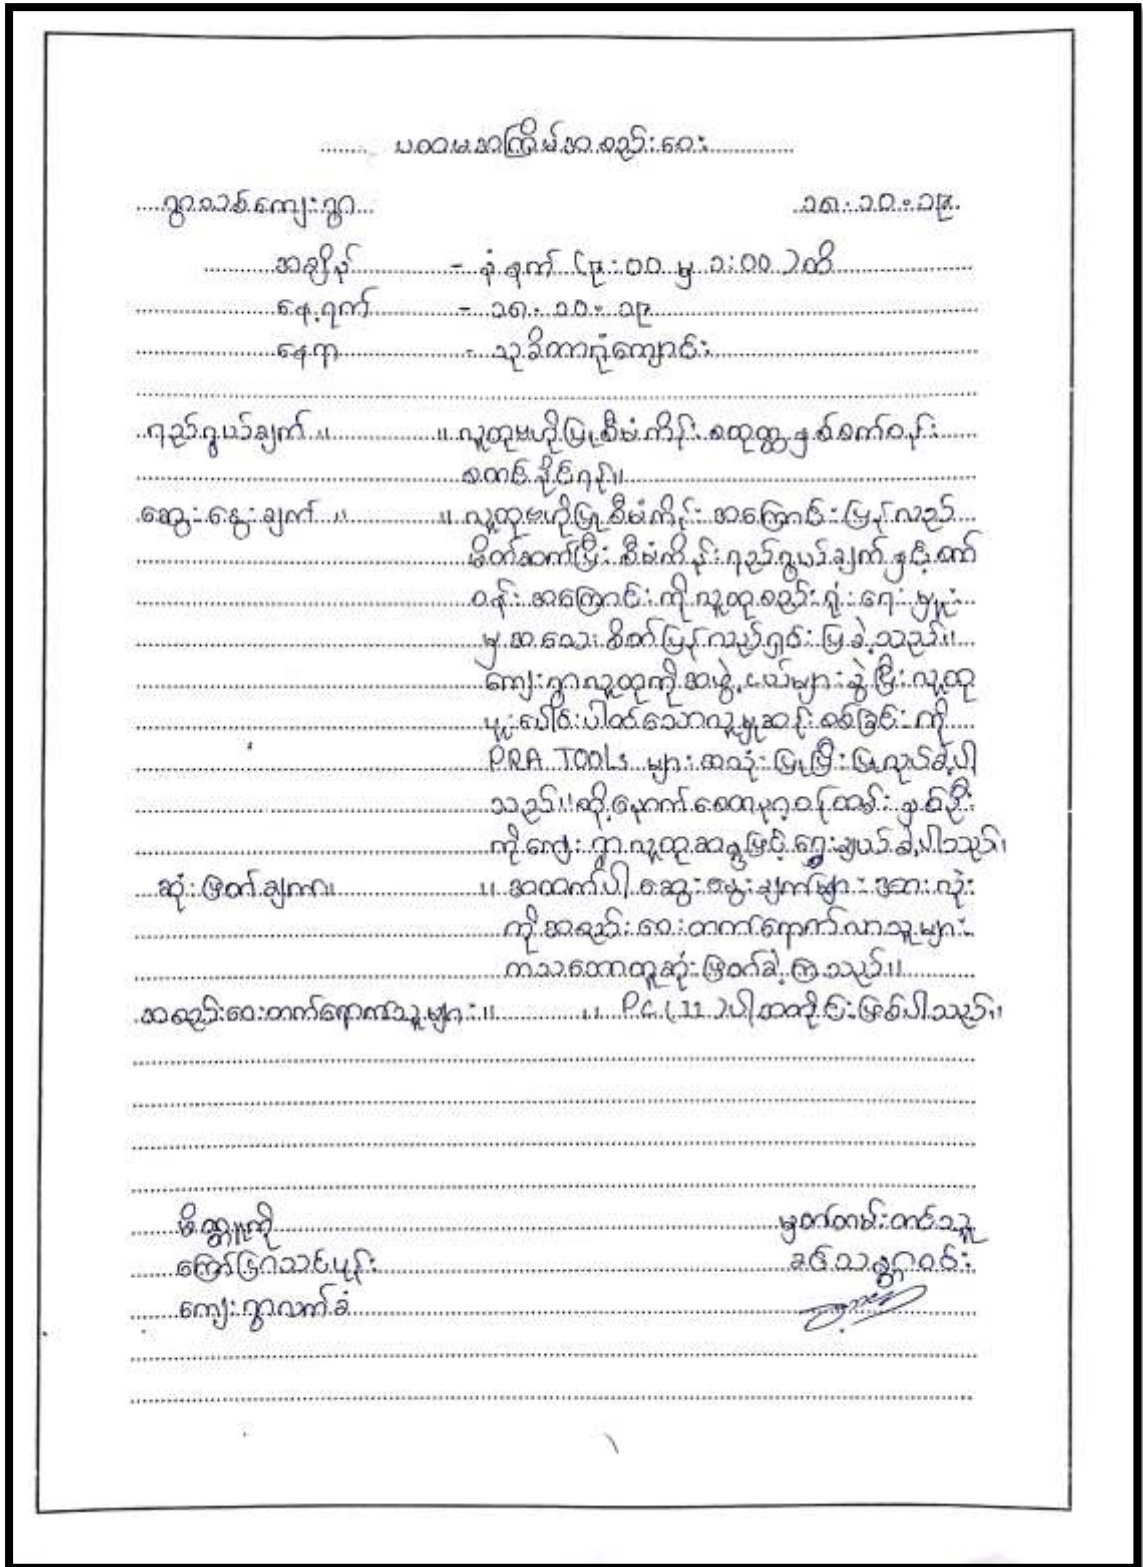 ပထမအကြိမ်အစည်းဝေး
ရွာသစ်ကျေးရွာ ၁၈.၁၀.၁၉
အချိန် - နံနက် (၉:၀၀ မှ ၁:၀၀) ထိ
နေ့ရက် - ၁၈.၁၀.၁၉
နေရာ - သုခိတာရုံကျောင်း
ရည်ရွယ်ချက် ။ ။ လူထုဗဟိုပြုစီမံကိန်း စတုတ္ထနှစ်စက်ဝန်း
စတင်နိုင်ရန်။
ဆွေးနွေးချက် ။ ။ လူထုဗဟိုပြုစီမံကိန်း အကြောင်းပြန်လည်
မိတ်ဆက်ပြီး စီမံကိန်းရည်ရွယ်ချက်နှင့်တာ
ဝန်းအကြောင်းကို လူထုစည်းရုံးရေးမှူး
မှအသေးစိတ်ပြန်လည်ရှင်းပြခဲ့သည်။
ကျေးရွာလူထုကိုအဖွဲ့ငယ်များခွဲပြီးလူထု
ပူးပေါင်းပါဝင်သောလူမှုဆန်းစစ်ခြင်းကို
PRA TOOLs များအသုံးပြုပြီးပြုလုပ်ခဲ့ပါ
သည်။ထို့နောက်စေတနာ့ဝန်ထမ်းနှစ်ဦး
ကိုကျေးရွာလူထုဆန္ဒဖြင့်ရွေးချယ်ခဲ့ပါသည်။
ဆုံးဖြတ်ချက်။ ။ အထက်ပါဆွေးနွေးချက်များအားလုံး
ကိုအစည်းဝေးတက်ရောက်လာသူများ
ကသဘောတူဆုံးဖြတ်ခဲ့ကြသည်။
အစည်းဝေးတက်ရောက်သူများ။ ။ PC (11) ပါအတိုင်းဖြစ်ပါသည်။
မိတ္တူကို မှတ်တမ်းတင်သူ
ကြော်ငြာသင်ပုန်း ခင်သန္တာဝင်း
ကျေးရွာလက်ခံ